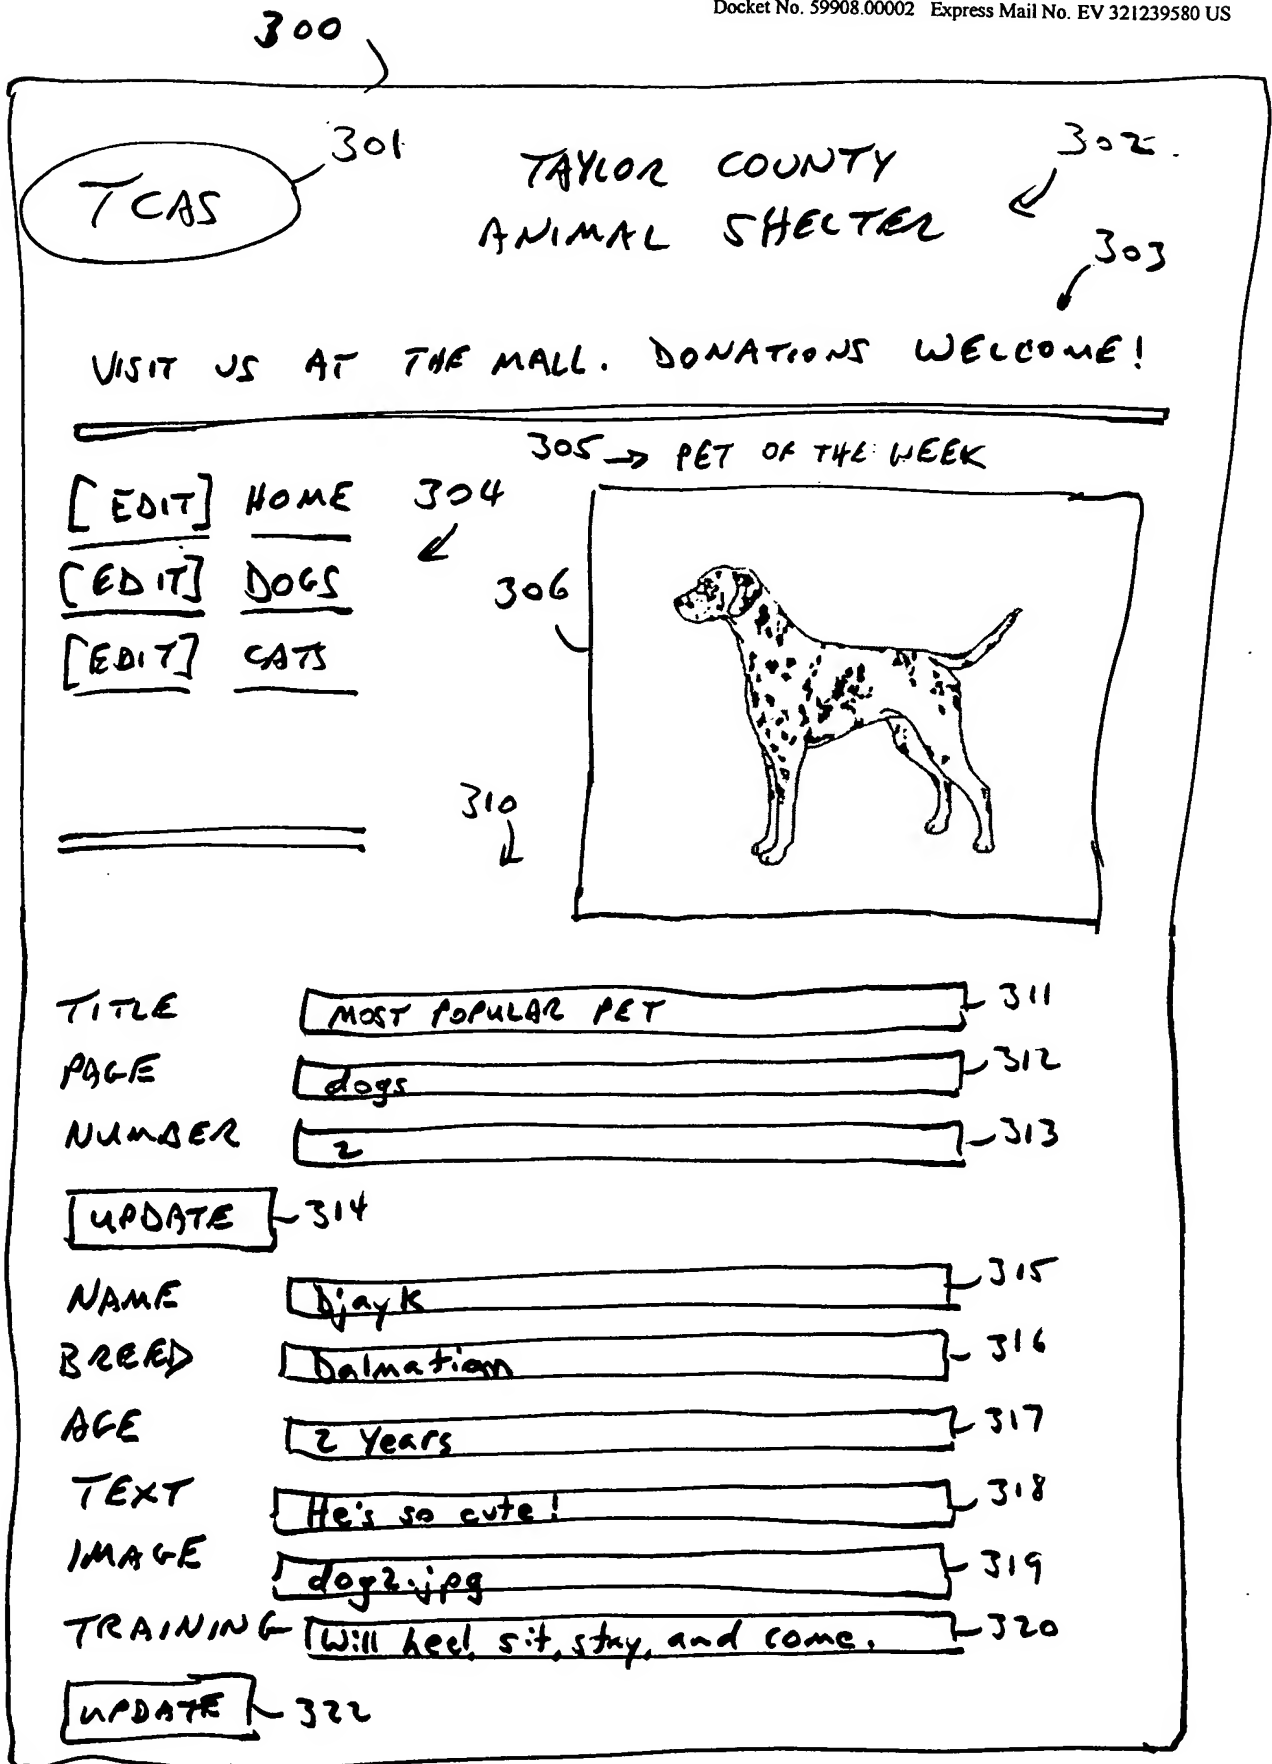 Docket No. 59908.00002 Express Mail No. EV 321239580 US
300
301
302
TCAS
TAYLOR COUNTY
ANIMAL SHELTER
303
VISIT US AT THE MALL. DONATIONS WELCOME!
305 PET OF THE WEEK
[EDIT] HOME 304
[EDIT] DOGS
306
[EDIT] CATS
310
TITLE MOST POPULAR PET 311
PAGE dogs 312
NUMBER 2 313
UPDATE 314
NAME Djayk 315
BREED Dalmatian 316
AGE 2 Years 317
TEXT He's so cute! 318
IMAGE dog2.jpg 319
TRAINING Will heel, sit, stay, and come. 320
UPDATE 322